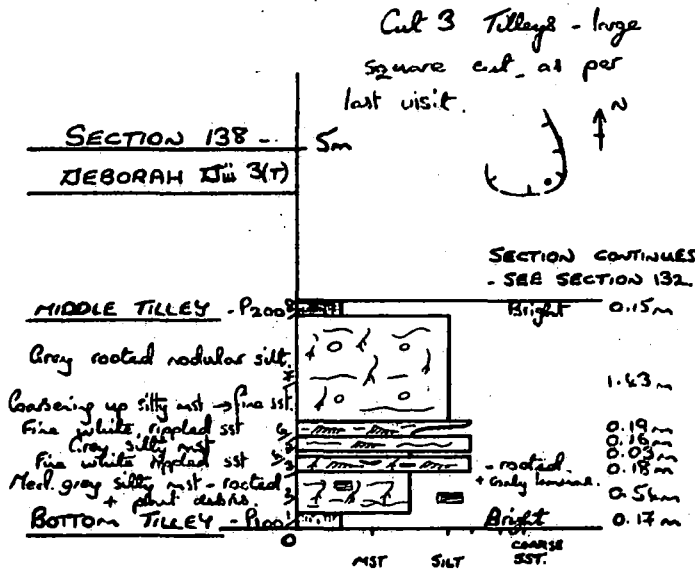 Cut 3 Tilleys - large
square cut, as per
last visit.
N
SECTION 138 -
5m
DEBORAH Diii 3(T)
SECTION CONTINUES
- SEE SECTION 132.
MIDDLE TILLEY - P200
Bright 0.15m
Grey rooted nodular silt.
1.43m
Coarsening up silty mst → fine sst.
Fine white rippled sst 0.19m
Grey silty mst 0.16m
0.03m
Fine white rippled sst 0.18m
- rooted
Med. grey silty mst - rooted
+ plant debris.
0.54m
BOTTOM TILLEY - P100
Bright 0.17m
0
MST SILT COARSE SST.